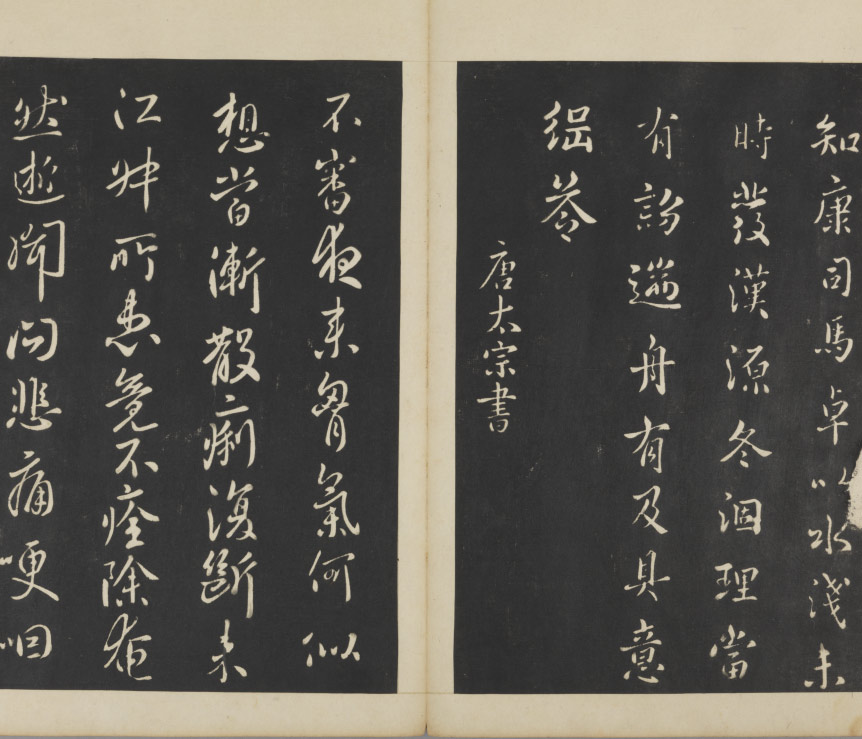 知康司馬卓以水淺未
時發漢源冬涸理當
有詔遄舟有及具意
唐太宗書
不審夜來胷氣何似
想當漸散痢復斷未
江叔所患竟不痊除奄
然逝聞問悲痛哽咽